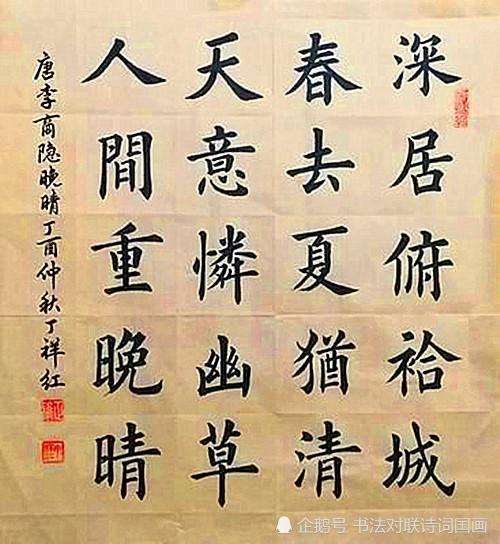 深居俯袷城
春去夏猶清
天意憐幽草
人間重晚晴
唐李商隐晚晴丁酉仲秋丁祥红
企鹅号 书法对联诗词国画